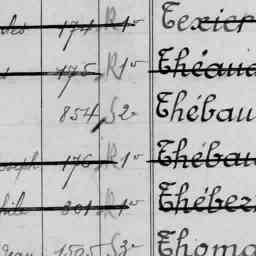 des 174 R 1º Texier
175 R 1º Théaud
854 S 2º Thébau
oseph 176 R 1º Thébau
phile 301 R 1º Thébez
1505 S 3º Thoma